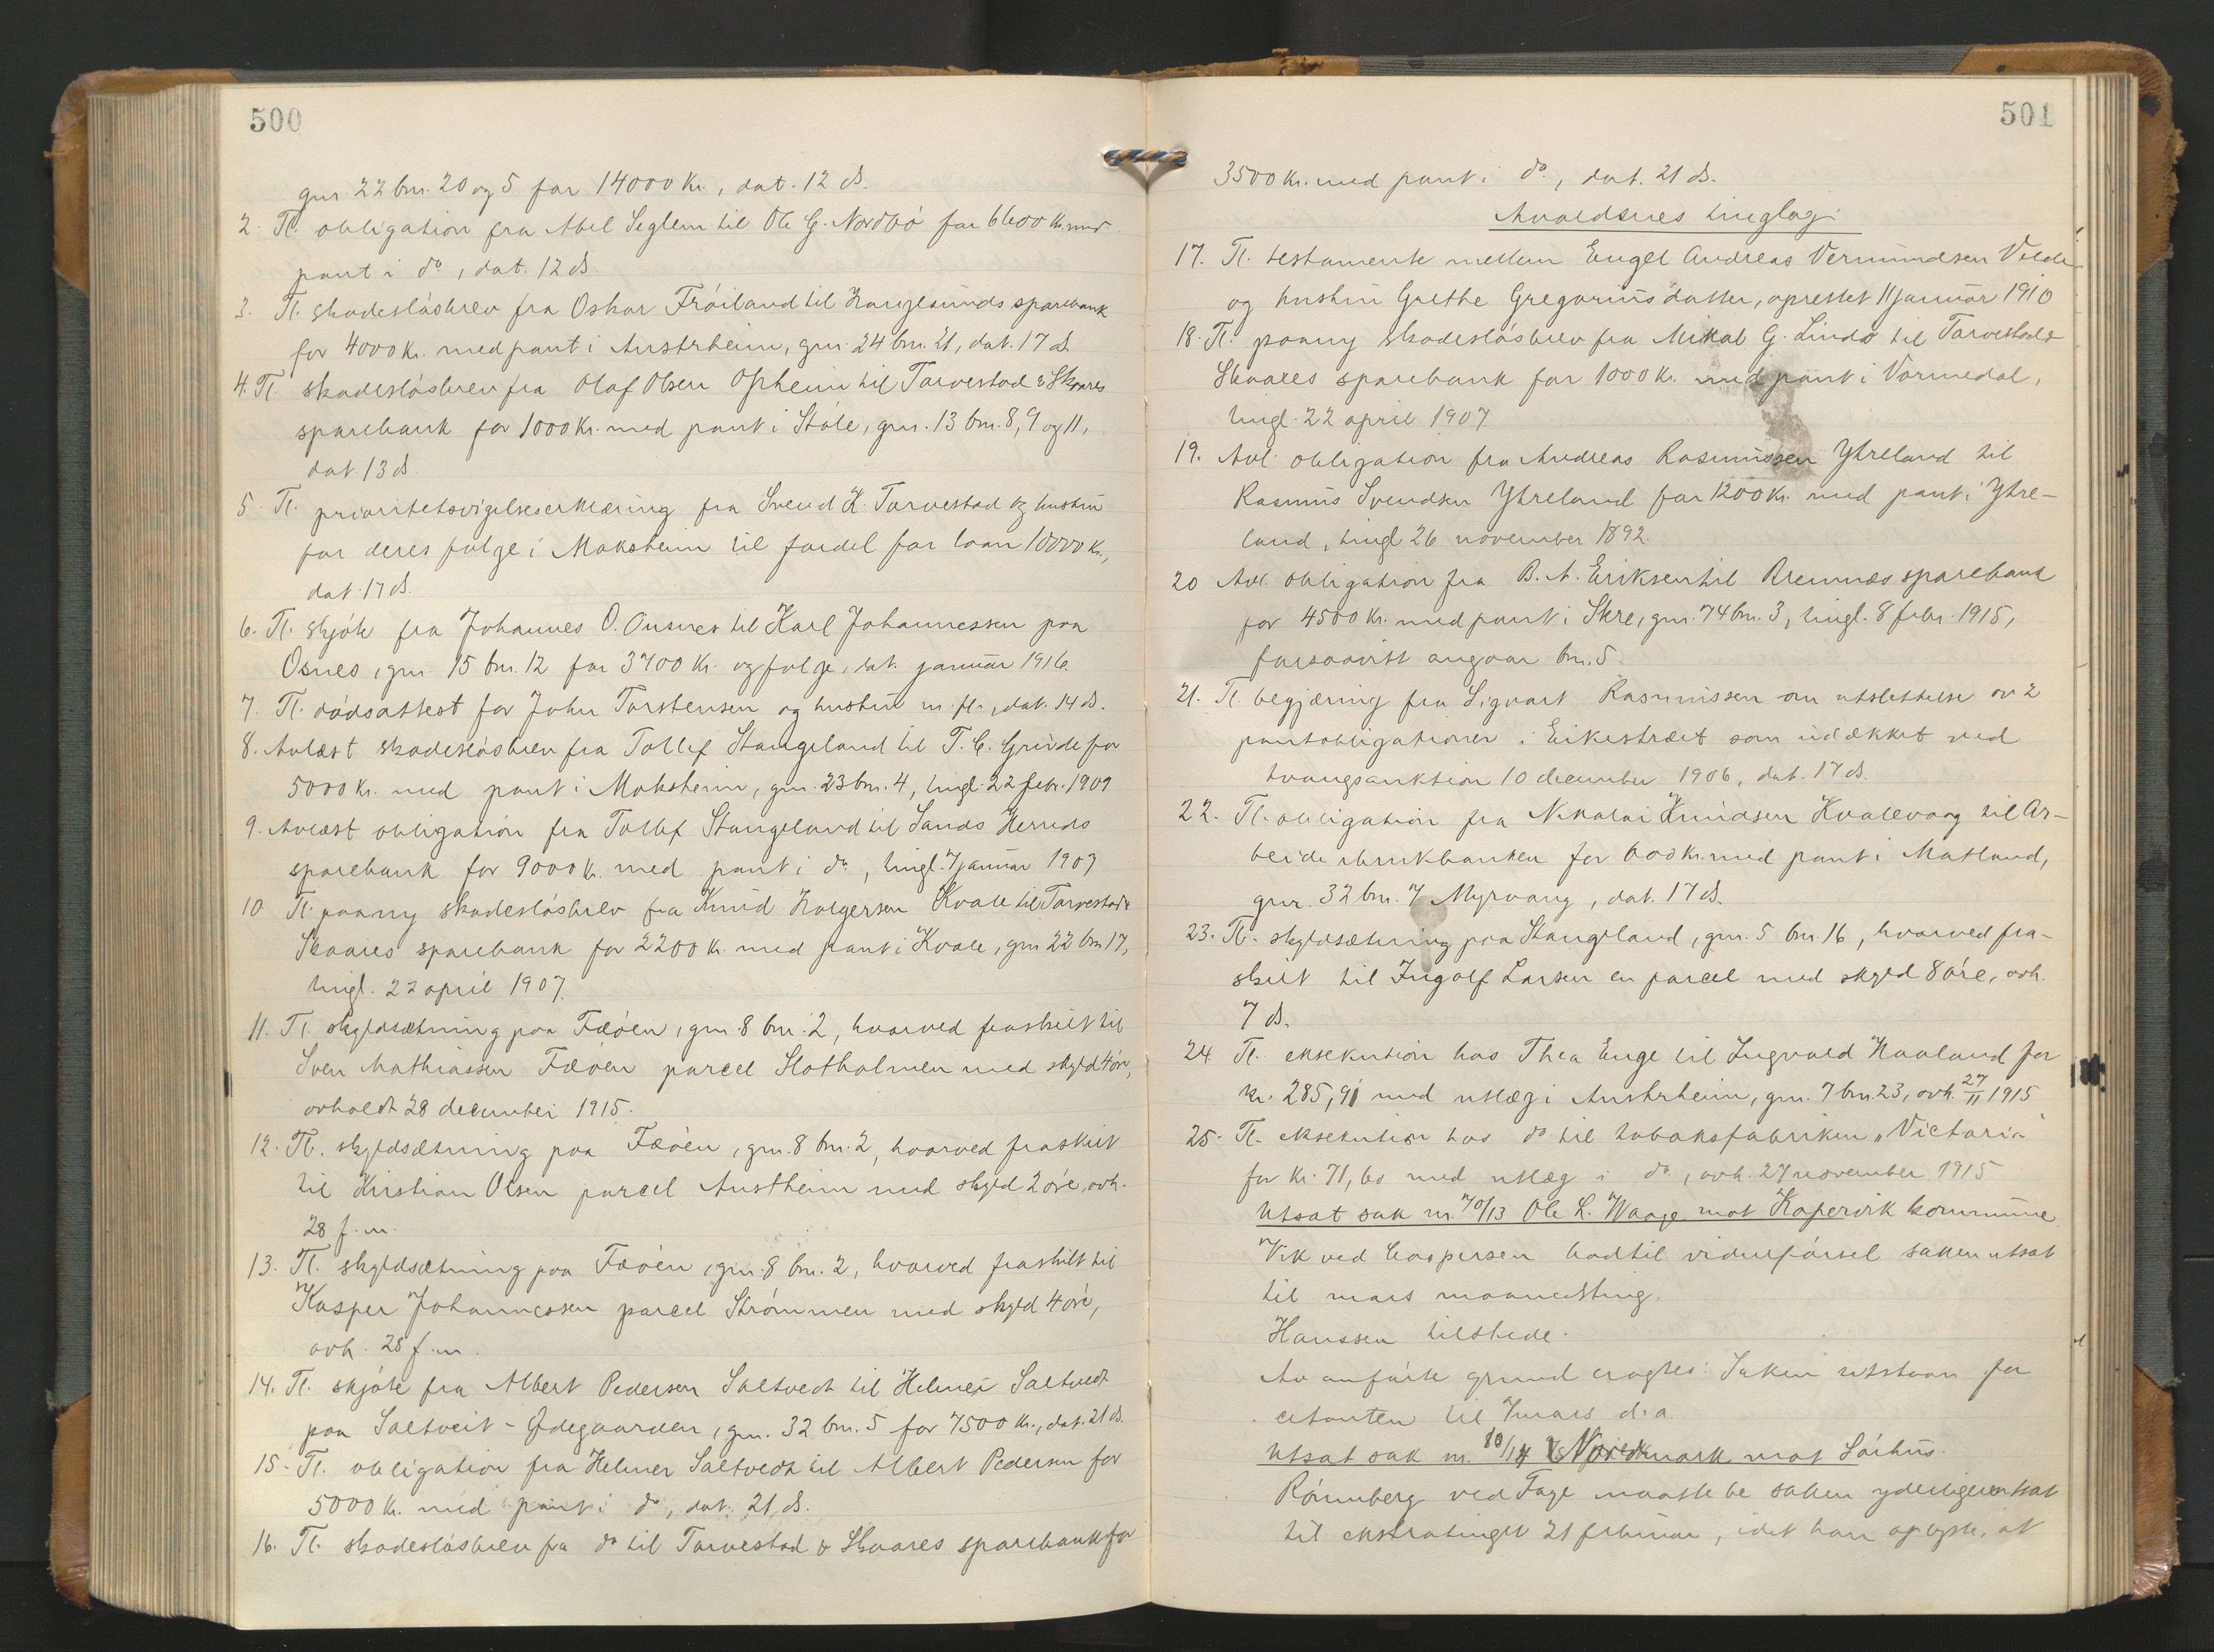 500
gnr. 22 bnr. 20 og 5 for 14000 Kr., dat. 12 ds.
2. Tl. obligation fra Abel Seglem til Ole G. Nordbö for 6600 Kr. med
pant i do, dat. 12 ds.
3. Tl. skadeslösbrev fra Oskar Fröiland til Haugesunds sparebank
for 4000 Kr. med pant i Austrheim, gnr. 24 bnr. 21, dat. 17 ds.
4. Tl. skadeslösbrev fra Olaf Olsen Opheim til Torvestad & Skaares
sparebank for 1000 Kr. med pant i Stole, gnr. 13 bnr. 8, 9 og 11,
dat. 13 ds.
5. Tl. prioritetsvigelseserklæring fra Svend K. Torvestad og hustru
for deres folge i Moksheim til fordel for laan 10000 Kr.,
dat. 17 ds.
6. Tl. skjöte fra Johannes O. Ousnes til Karl Johannessen paa
Osnes, gnr. 15 bnr. 12 for 3700 Kr. og folge, dat. januar 1916.
7. Tl. dödsattest for John Torstensen og hustru m. fl., dat. 14 ds.
8. Avlæst skadeslösbrev fra Tollef Stangeland til T. C. Grinde for
5000 Kr. med pant i Moksheim, gnr. 23 bnr. 4, tingl. 22 febr. 1909
9. Avlæst obligation fra Tollef Stangeland til Sands Herreds
sparebank for 9000 Kr. med pant i do, tingl. 7 januar 1907
10 Tl. paany skadeslösbrev fra Knud Holgersen Kvale til Torvestad &
Skaares sparebank for 2200 Kr. med pant i Kvale, gnr. 22 bnr 17,
tingl. 22 april 1907.
11. Tl. skyldsætning paa Fæöen, gnr. 8 bnr. 2, hvorved fraskilt til
Sven Mathiassen Fæöen parcel Slotholmen med skyld 4 öre,
avholdt 28 december 1915.
12. Tl. skyldsætning paa Fæöen, gnr. 8 bnr. 2, hvorved fraskilt
til Kristian Olsen parcel Austheim med skyld 2 öre, avh.
28 f. m.
13. Tl. skyldsætning paa Fæöen, gnr. 8 bnr. 2, hvorved fraskilt til
Kasper Johannessen parcel Strömmen med skyld 4 öre,
avh. 28 f. m.
14. Tl. skjöte fra Albert Pedersen Saltvedt til Helmer Saltvedt
paa Saltveit-Ødegaarden, gnr. 32 bnr. 5 for 7500 Kr., dat. 21 ds.
15. Tl. obligation fra Helmer Saltvedt til Albert Pedersen for
5000 Kr. med pant i do, dat. 21 ds.
16. Tl. skadeslösbrev fra do til Torvestad & Skaares sparebank for
501
3500 Kr. med pant i do, dat. 21 ds.
Avaldsnes tinglag:
17. Tl. testamente mellem Engel Andreas Vermundsen Velde
og hustru Grethe Gregoriusdatter, oprettet 11 januar 1910
18. Tl. paany skadeslösbrev fra Mikal G. Lindö til Torvestad &
Skaares sparebank for 1000 Kr. med pant i Vormedal,
tingl. 22 april 1907
19. Avl. obligation fra Andreas Rasmussen Ytreland til
Rasmus Svendsen Ytreland for 1200 Kr. med pant i Ytre-
land, tingl 26 november 1892.
20 Avl. obligation fra B. A. Eriksen til Bremnæs sparebank
for 4500 Kr. med pant i Skre, gnr. 74 bnr. 3, tingl. 8 febr. 1915,
forsaavitt angaar bnr. 5.
21. Tl begjæring fra Sigvart Rasmussen om utslettelse av 2
pantobligationer i Eikestræet som udækket ved
tvangsauktion 10 december 1906, dat. 17 ds.
22. Tl. obligation fra Nikolai Knudsen Kvalevaag til Ar-
beiderbrukbanken for 600 Kr. med pant i Matland,
gnr. 32 bnr. 7 Myrvang, dat. 17 ds.
23. Tl. skyldsætning paa Stangeland, gnr. 5 bnr. 16, hvorved fra-
skilt til Ingolf Larsen en parcel med skyld 8 öre, avh.
7 ds.
24. Tl. eksekution hos Thea Enge til Ingvald Haaland for
kr. 285,91 med utlæg i Austrheim, gnr. 7 bnr. 23, avh. 27/11 1915
25. Tl. eksekution hos do til tobaksfabriken „Victoria
for kr. 71,60 med utlæg i do, avh. 27 november 1915
Utsat sak nr. 70/13 Ole L. Waage mot Kopervik kommune.
Vik ved Caspersen bad til videreförsel saken utsat
til mars maanedsting.
Hanssen tilstede.
Av anförte grund eragtes: Saken utstaar for
citanten til 7 mars d. a.
Utsat sak nr. 80/14 Nordmark mot Sörhus.
Rönneberg ved Fage maatte be saken yderligere utsat
til ekstratinget 21 februar, idet han oplyste, at